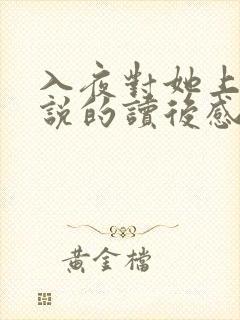 入夜對她上
說的讀後感
黃金檔